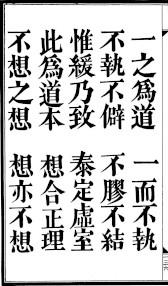 一之為道　一而不執
不執不僻　不膠不結
惟緩乃致　泰定虛室
此為道本　想合正理
不想之想　想亦不想